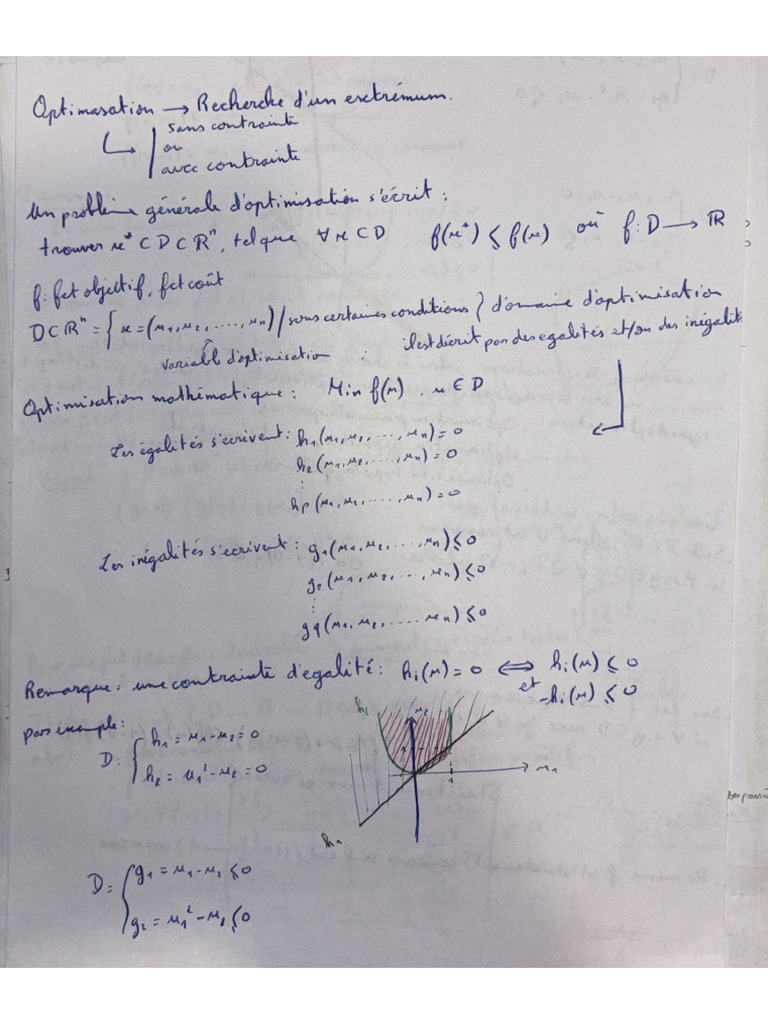 Optimasation → Recherche d'un exctrémum.
sans contrainte
ou
avec contrainte
Un problème générale d'optimisation s'écrit :
trouver x* ⊂ D ⊂ ℝⁿ, tel que ∀ x ⊂ D f(x*) ≤ f(x) où f: D → ℝ
f: fct objectif, fct coût
D ⊂ ℝⁿ = { x = (x₁, x₂, ...., xₙ) / sous certaines conditions } d'omaine d'optimisation
variable d'optimisation : il est décrit par des egalités et/ou des inégalit
Optimisation mathématique : Min f(x), x ∈ D
Les égalités s'ecrivent : h₁(x₁, x₂, ...., xₙ) = 0
h₂(x₁, x₂, ...., xₙ) = 0
⋮
hp(x₁, x₂, ...., xₙ) = 0
Les inégalités s'ecrivent : g₁(x₁, x₂, ...., xₙ) ≤ 0
g₂(x₁, x₂, ..., xₙ) ≤ 0
⋮
gq(x₁, x₂, .... xₙ) ≤ 0
Remarque : une contrainte d'egalité : hi(x) = 0 ⟺ hi(x) ≤ 0
et
-hi(x) ≤ 0
par exemple :
D: { h₁ = x₁ - x₂ = 0
h₂ = x₁² - x₂ = 0
h₂ x₂
x₁
1
h₁
D = { g₁ = x₁ - x₂ ≤ 0
g₂ = x₁² - x₂ ≤ 0